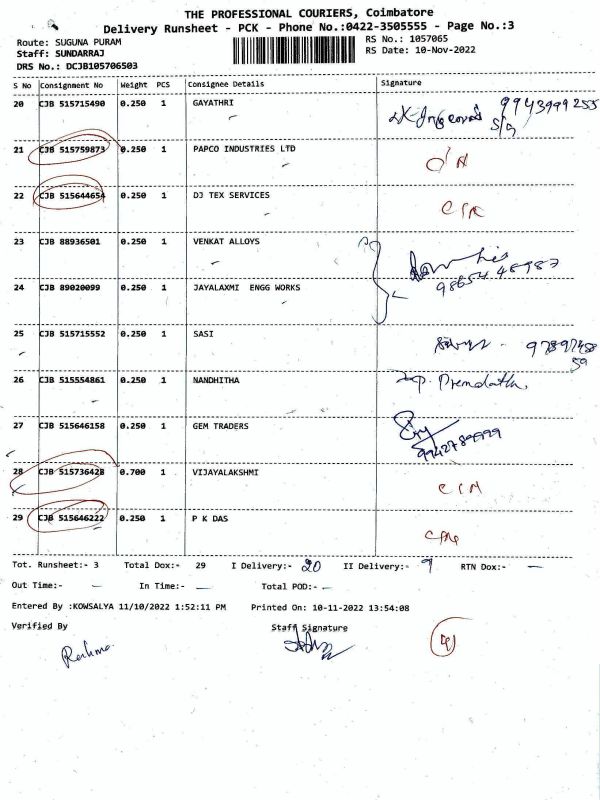 THE PROFESSIONAL COURIERS, Coimbatore
Delivery Runsheet - PCK - Phone No.:0422-3505555 - Page No.:3
Route: SUGUNA PURAM
RS No.: 1057065
Staff: SUNDARRAJ
RS Date: 10-Nov-2022
DRS No.: DCJB105706503
S No Consignment No Weight PCS Consignee Details Signature
20 CJB 515715490 0.250 1 GAYATHRI 9943999255
S/o
21 CJB 515759873 0.250 1 PAPCO INDUSTRIES LTD
22 CJB 515644654 0.250 1 DJ TEX SERVICES
23 CJB 88936501 0.250 1 VENKAT ALLOYS
98654 48987
24 CJB 89020099 0.250 1 JAYALAXMI ENGG WORKS
25 CJB 515715552 0.250 1 SASI
26 CJB 515554861 0.250 1 NANDHITHA
27 CJB 515646158 0.250 1 GEM TRADERS
28 CJB 515736428 0.700 1 VIJAYALAKSHMI
29 CJB 515646222 0.250 1 P K DAS
Tot. Runsheet:- 3 Total Dox:- 29 I Delivery:- 20 II Delivery:- 9 RTN Dox:- —
Out Time:- — In Time:- — Total POD:- —
Entered By :KOWSALYA 11/10/2022 1:52:11 PM Printed On: 10-11-2022 13:54:08
Verified By Staff Signature